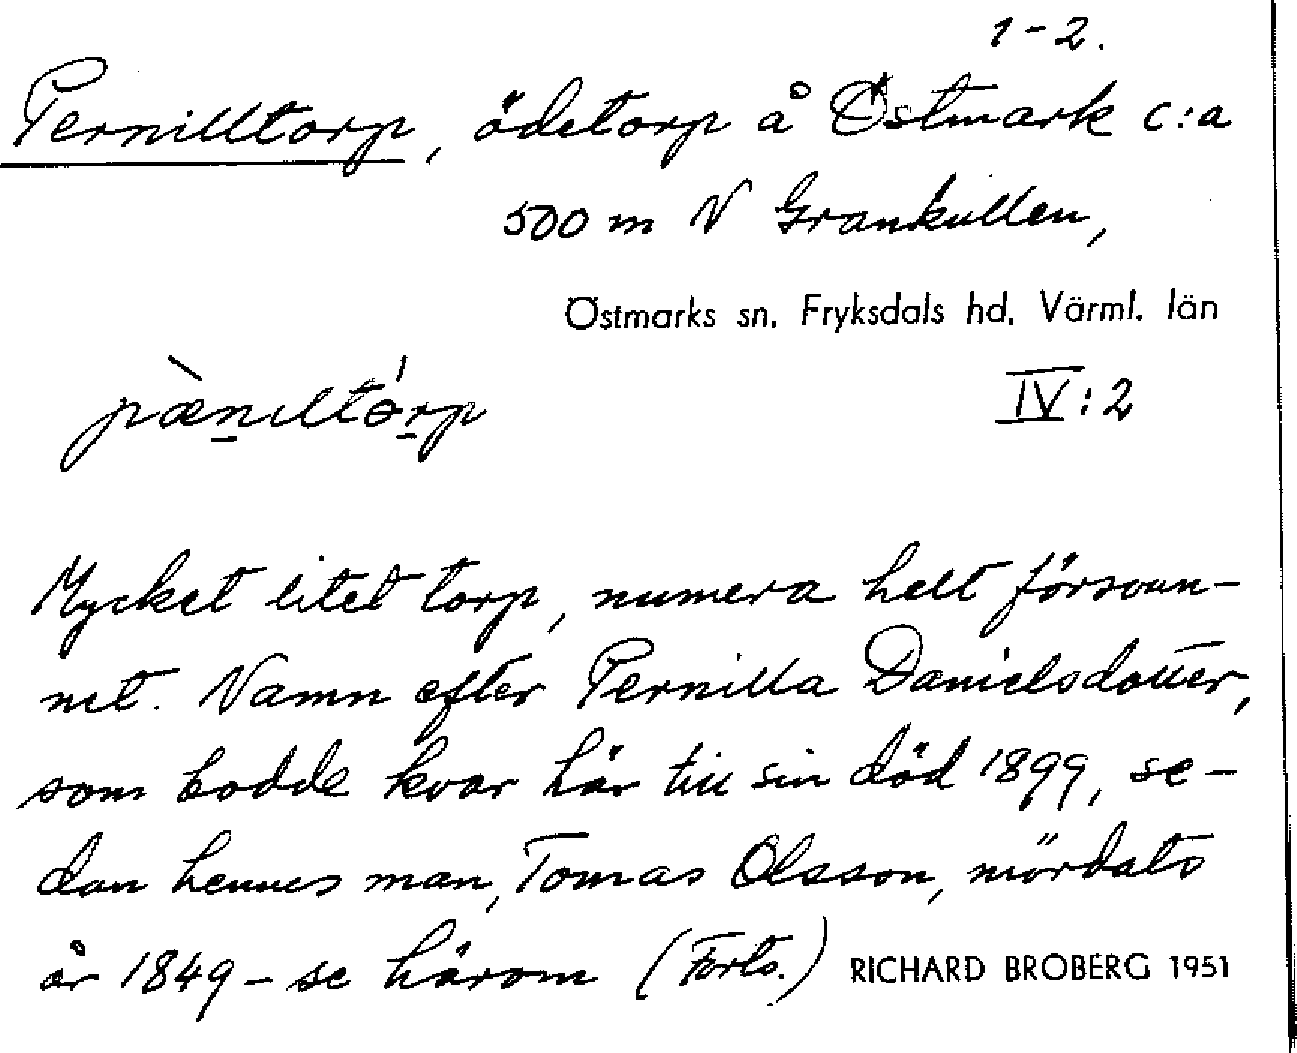 1-2.
Pernilltorp, ödetorp å Östmark c:a
500 m V Grankullen,
Östmarks sn. Fryksdals hd. Värml. län
pæ̀niltórp IV:2
Mycket litet torp, numera helt försvun-
net. Namn efter Pernilla Danielsdotter,
som bodde kvar här till sin död 1899, se-
dan hennes man, Tomas Olsson, mördats
år 1849 - se härom (Forts.) RICHARD BROBERG 1951